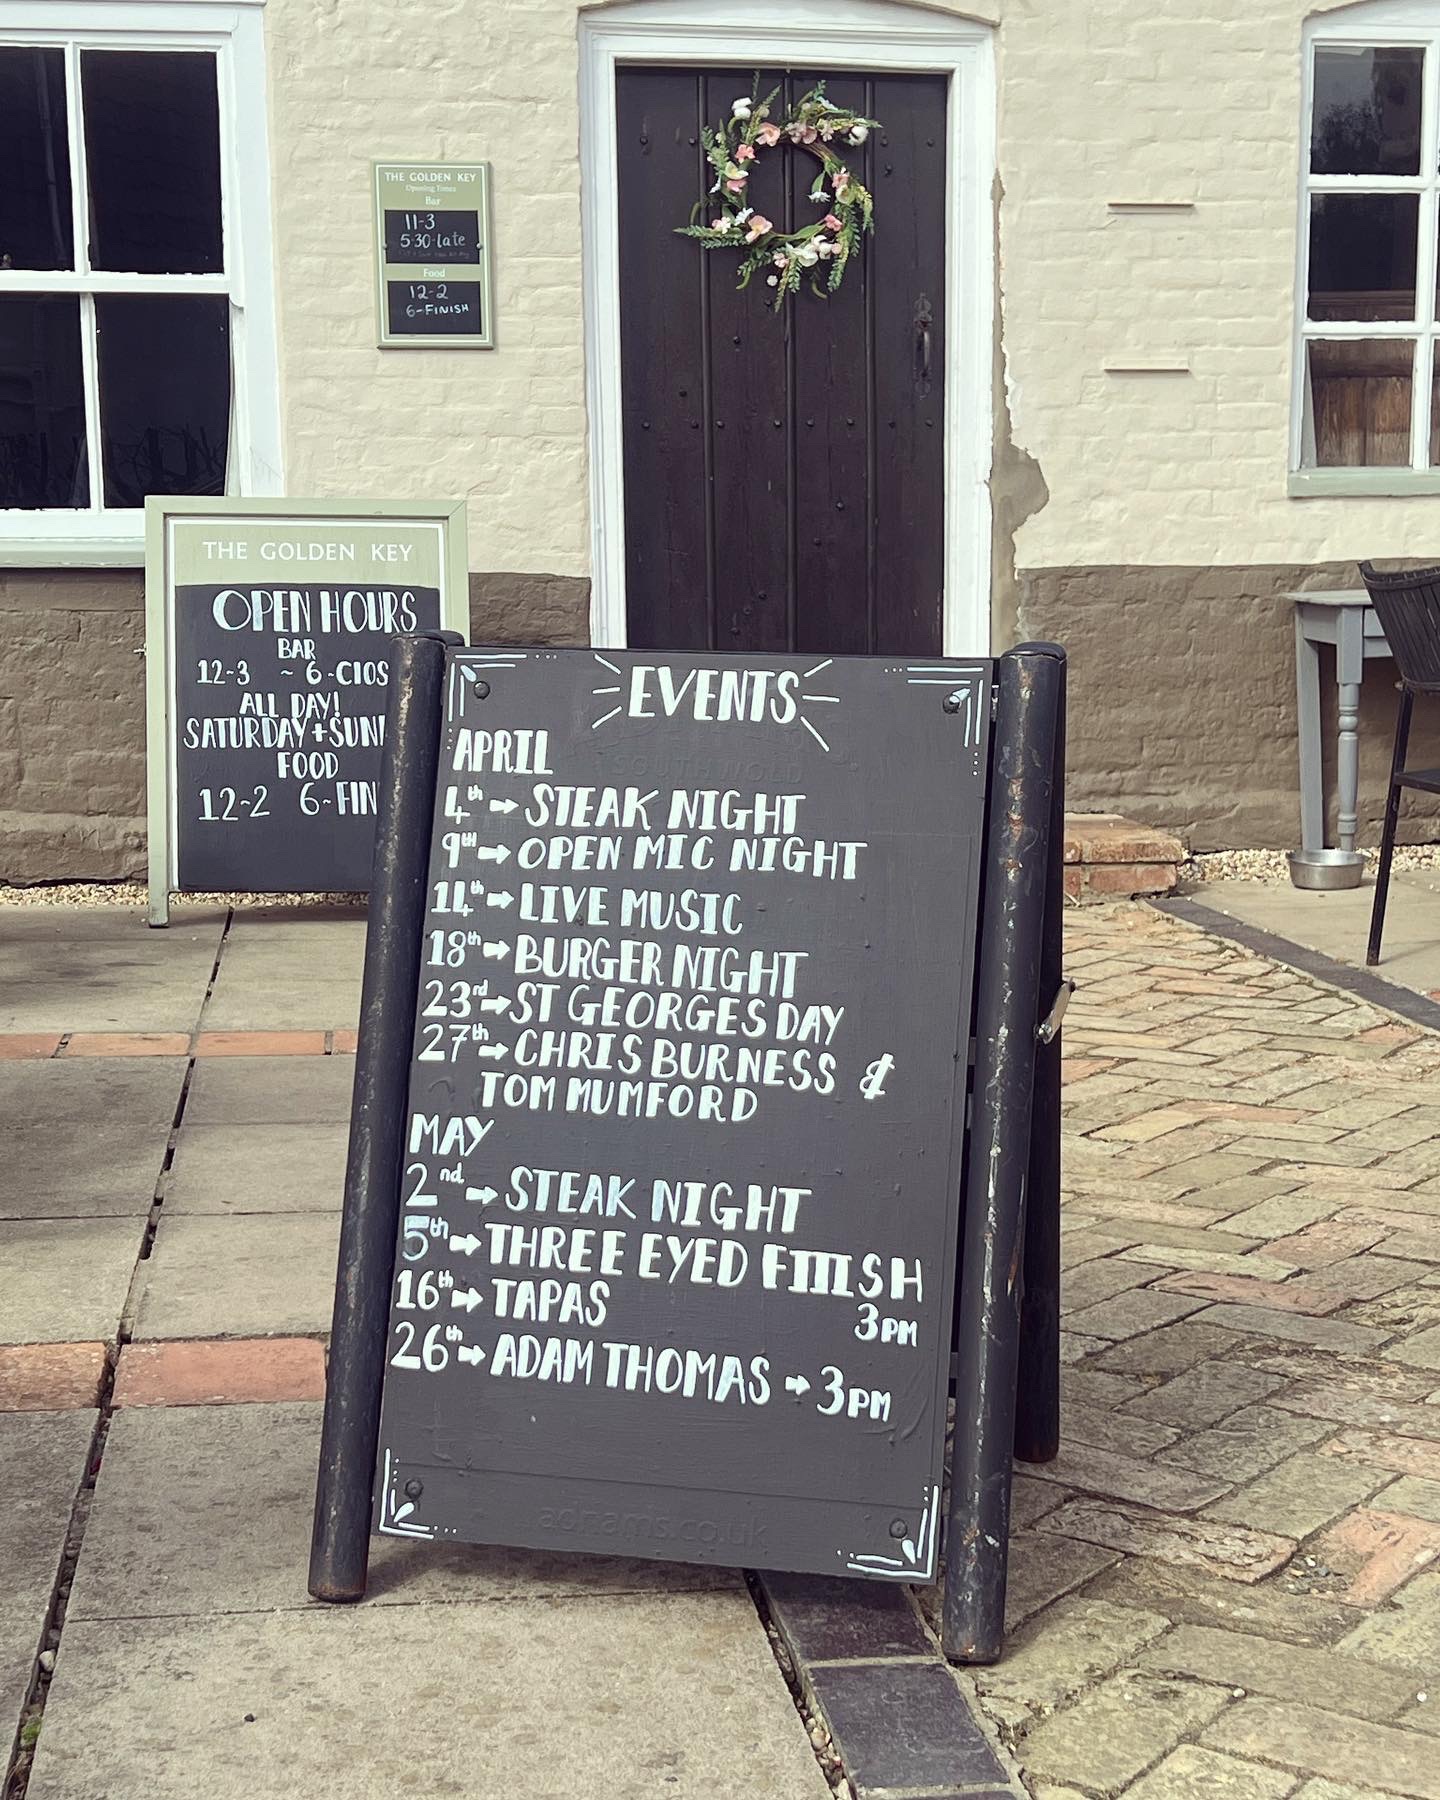 THE GOLDEN KEY
Opening Times
Bar
11-3
5.30-late
Food
12-2
6-FINISH
THE GOLDEN KEY
OPEN HOURS
BAR
12-3 ~ 6-ClOS
ALL DAY!
SATURDAY + SUN
FOOD
12-2 6-FIN
EVENTS
SOUTHWOLD
APRIL
4th → STEAK NIGHT
9TH → OPEN MIC NIGHT
14th → LIVE MUSIC
18th → BURGER NIGHT
23rd → ST GEORGES DAY
27th → CHRIS BURNESS &
TOM MUMFORD
MAY
2nd. → STEAK NIGHT
5th → THREE EYED FIIISH
3PM
16th → TAPAS
26th → ADAM THOMAS → 3PM
adnams.co.uk